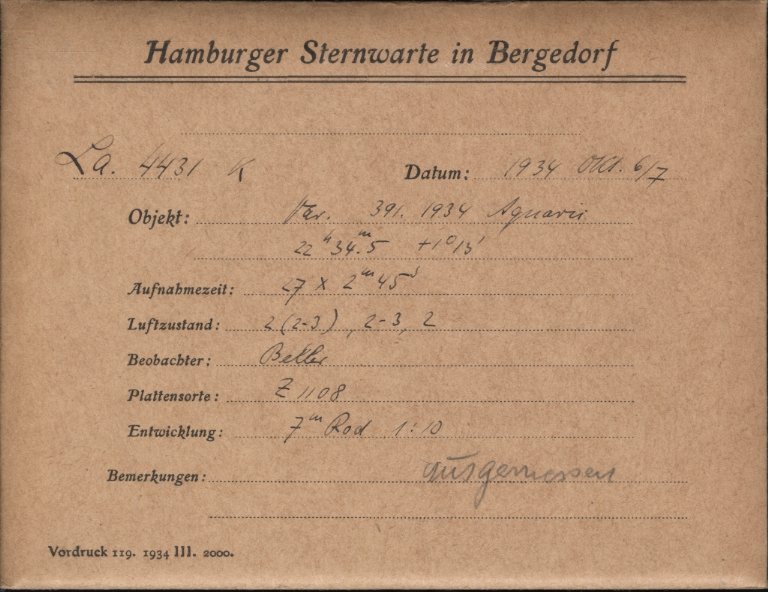 Hamburger Sternwarte in Bergedorf
La. 4431 K Datum: 1934 Okt. 6/7
Objekt: Var. 391. 1934 Aquarii
22ʰ 34ᵐ.5 +1° 13'
Aufnahmezeit: 27 x 2ᵐ 45ˢ
Luftzustand: 2 (2-3), 2-3, 2
Beobachter:
Plattensorte: Z 1108
Entwicklung: 7ᵐ Rod 1:10
Bemerkungen: ausgemessen
Vordruck 119. 1934 III. 2000.